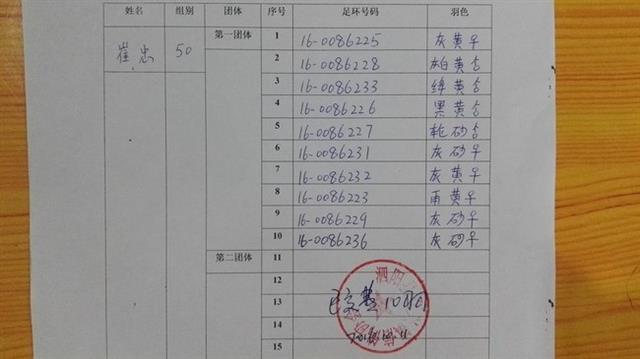 姓名 组别 团体 序号 足环号码 羽色
崔忠 50 第一团体 1 16-0086225 灰黄平
2 16-0086228 灰白黄合
3 16-0086233 绛黄合
4 16-0086226 黑黄合
5 16-0086227 轮砂合
6 16-0086231 灰砂平
7 16-0086232 灰黄平
8 16-0086223 雨黄平
9 16-0086229 灰砂平
10 16-0086236 灰砂平
第二团体 11
12
13
14
15
泗阳